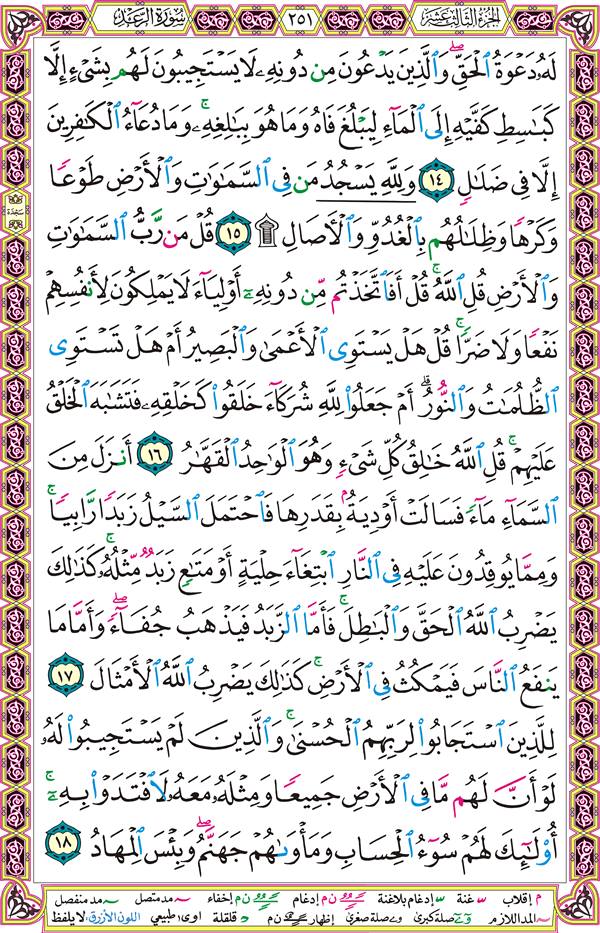 الجزء الثالث عشر ٢٥١ سورة الرعد
لَهُۥ دَعْوَةُ ٱلْحَقِّ ۖ وَٱلَّذِينَ يَدْعُونَ مِن دُونِهِۦ لَا يَسْتَجِيبُونَ لَهُم بِشَىْءٍ إِلَّا
كَبَـٰسِطِ كَفَّيْهِ إِلَى ٱلْمَآءِ لِيَبْلُغَ فَاهُ وَمَا هُوَ بِبَـٰلِغِهِۦ ۚ وَمَا دُعَآءُ ٱلْكَـٰفِرِينَ
إِلَّا فِى ضَلَـٰلٍ ١٤ وَلِلَّهِ يَسْجُدُ مَن فِى ٱلسَّمَـٰوَٰتِ وَٱلْأَرْضِ طَوْعًا
سجدة
وَكَرْهًا وَظِلَـٰلُهُم بِٱلْغُدُوِّ وَٱلْـَٔاصَالِ ۩ ١٥ قُلْ مَن رَّبُّ ٱلسَّمَـٰوَٰتِ
وَٱلْأَرْضِ قُلِ ٱللَّهُ ۚ قُلْ أَفَٱتَّخَذْتُم مِّن دُونِهِۦٓ أَوْلِيَآءَ لَا يَمْلِكُونَ لِأَنفُسِهِمْ
نَفْعًا وَلَا ضَرًّا ۚ قُلْ هَلْ يَسْتَوِى ٱلْأَعْمَىٰ وَٱلْبَصِيرُ أَمْ هَلْ تَسْتَوِى
ٱلظُّلُمَـٰتُ وَٱلنُّورُ ۗ أَمْ جَعَلُوا۟ لِلَّهِ شُرَكَآءَ خَلَقُوا۟ كَخَلْقِهِۦ فَتَشَـٰبَهَ ٱلْخَلْقُ
عَلَيْهِمْ ۚ قُلِ ٱللَّهُ خَـٰلِقُ كُلِّ شَىْءٍ وَهُوَ ٱلْوَٰحِدُ ٱلْقَهَّـٰرُ ١٦ أَنزَلَ مِنَ
ٱلسَّمَآءِ مَآءً فَسَالَتْ أَوْدِيَةٌۢ بِقَدَرِهَا فَٱحْتَمَلَ ٱلسَّيْلُ زَبَدًا رَّابِيًا ۚ
وَمِمَّا يُوقِدُونَ عَلَيْهِ فِى ٱلنَّارِ ٱبْتِغَآءَ حِلْيَةٍ أَوْ مَتَـٰعٍ زَبَدٌ مِّثْلُهُۥ ۚ كَذَٰلِكَ
يَضْرِبُ ٱللَّهُ ٱلْحَقَّ وَٱلْبَـٰطِلَ ۚ فَأَمَّا ٱلزَّبَدُ فَيَذْهَبُ جُفَآءً ۖ وَأَمَّا مَا
يَنفَعُ ٱلنَّاسَ فَيَمْكُثُ فِى ٱلْأَرْضِ ۚ كَذَٰلِكَ يَضْرِبُ ٱللَّهُ ٱلْأَمْثَالَ ١٧
لِلَّذِينَ ٱسْتَجَابُوا۟ لِرَبِّهِمُ ٱلْحُسْنَىٰ ۚ وَٱلَّذِينَ لَمْ يَسْتَجِيبُوا۟ لَهُۥ
لَوْ أَنَّ لَهُم مَّا فِى ٱلْأَرْضِ جَمِيعًا وَمِثْلَهُۥ مَعَهُۥ لَٱفْتَدَوْا۟ بِهِۦٓ ۚ
أُو۟لَـٰٓئِكَ لَهُمْ سُوٓءُ ٱلْحِسَابِ وَمَأْوَىٰهُمْ جَهَنَّمُ ۖ وَبِئْسَ ٱلْمِهَادُ ١٨
م إقلاب غنة إدغام بلاغنة ن م إدغام ن م إخفاء مد متصل مد منفصل
المد اللازم صلة كبرى صلة صغرى إظهار ن م قلقلة اوى طبيعي اللون الأزرق لا يلفظ